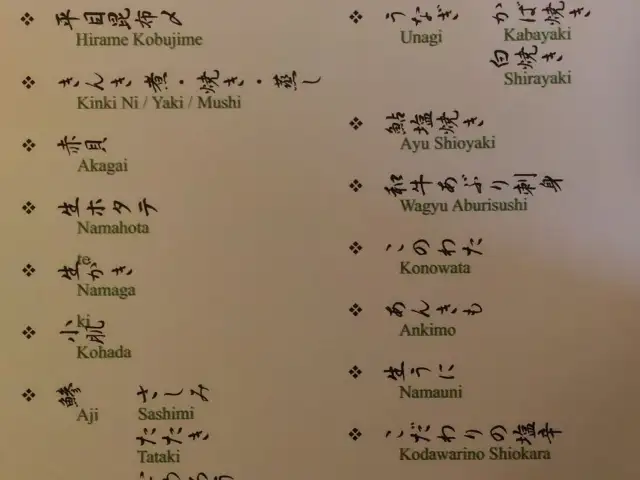 平目昆布〆
Hirame Kobujime
きんき煮・焼き・蒸し
Kinki Ni / Yaki / Mushi
赤貝
Akagai
生ホタテ
Namahota
te
生がき
Namaga
ki
小肌
Kohada
鯵 さしみ
Aji Sashimi
たたき
Tataki
うなぎ かば焼き
Unagi Kabayaki
白焼き
Shirayaki
鮎塩焼き
Ayu Shioyaki
和牛あぶり刺身
Wagyu Aburisushi
このわた
Konowata
あんきも
Ankimo
生うに
Namauni
こだわりの塩辛
Kodawarino Shiokara